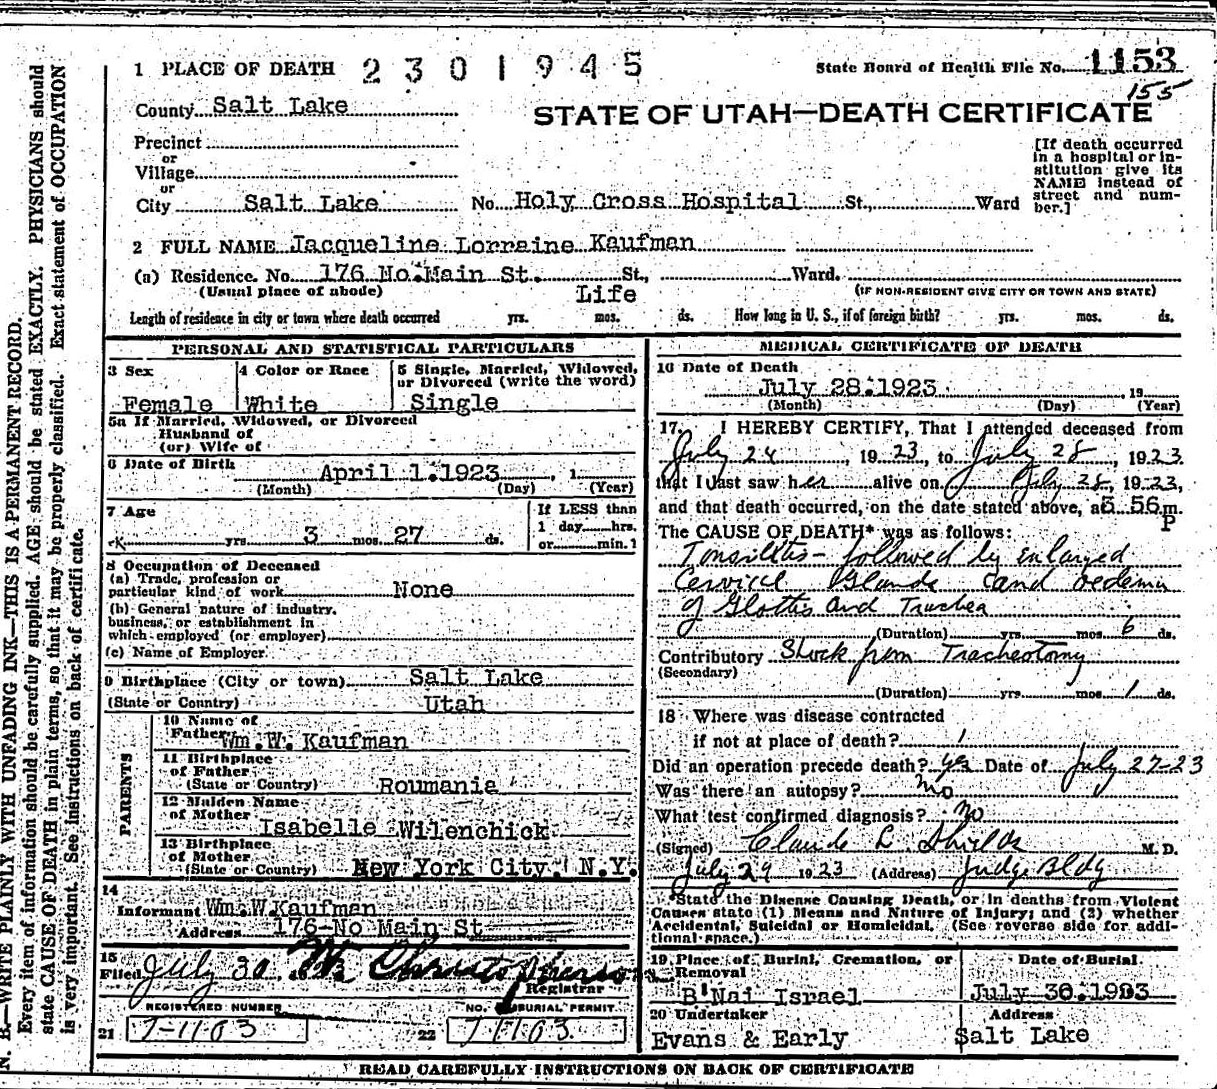 1 PLACE OF DEATH 2301945 State Board of Health File No. 1153
155
County Salt Lake
STATE OF UTAH—DEATH CERTIFICATE
Precinct
or
Village
or
City Salt Lake No. Holy Cross Hospital St., Ward
[If death occurred
in a hospital or in-
stitution give its
NAME instead of
street and num-
ber.]
2 FULL NAME Jacqueline Lorraine Kaufman
(a) Residence. No. 176 No.Main St. St., Ward.
(Usual place of abode) (IF NON-RESIDENT GIVE CITY OR TOWN AND STATE)
Life
Length of residence in city or town where death occurred yrs. mos. ds. How long in U. S., if of foreign birth? yrs. mos. ds.
PERSONAL AND STATISTICAL PARTICULARS
3 Sex
Female
4 Color or Race
White
5 Single, Married, Widowed,
or Divorced (write the word)
Single
5a If Married, Widowed, or Divorced
Husband of
(or) Wife of
6 Date of Birth
April 1.1923 , 1
(Month) (Day) (Year)
7 Age
yrs. 3 mos. 27 ds.
If LESS than
1 day hrs.
or min.?
8 Occupation of Deceased
(a) Trade, profession or
particular kind of work None
(b) General nature of industry,
business, or establishment in
which employed (or employer)
(c) Name of Employer
9 Birthplace (City or town) Salt Lake
(State or Country) Utah
PARENTS
10 Name of
Father Wm.W. Kaufman
11 Birthplace
of Father
(State or Country) Roumania
12 Maiden Name
of Mother
Isabelle Wilenchick
13 Birthplace
of Mother
(State or Country) New York City, N.Y.
14
Informant Wm.W.Kaufman
Address 176-No Main St
15
Filed July 30 1923 W Christopherson
Registrar
REGISTERED NUMBER
21 7-1103
NO. BURIAL PERMIT
22 71103
MEDICAL CERTIFICATE OF DEATH
16 Date of Death
July 28.1923 19
(Month) (Day) (Year)
17. I HEREBY CERTIFY, That I attended deceased from
July 24, 1923, to July 28, 1923.
that I last saw her alive on July 28, 1923,
and that death occurred, on the date stated above, at 3 56 m.
P
The CAUSE OF DEATH* was as follows:
Tonsilitis - followed by enlarged
Cervical Glands and oedema
of Glottis and Trachea
(Duration) yrs. mos. 6 ds.
Contributory Shock from Tracheotomy
(Secondary)
(Duration) yrs. mos. 1 ds.
18 Where was disease contracted
if not at place of death?
Did an operation precede death? yes Date of July 27-23
Was there an autopsy? no
What test confirmed diagnosis? no
(Signed) Claude L. Shields M. D.
July 29 1923 (Address) Judge Bldg
*State the Disease Causing Death, or in deaths from Violent
Causes state (1) Means and Nature of Injury; and (2) whether
Accidental, Suicidal or Homicidal. (See reverse side for addi-
tional space.)
19 Place of Burial, Cremation, or
Removal
B'Nai Israel
Date of Burial
July 30.1993
20 Undertaker
Evans & Early
Address
Salt Lake
READ CAREFULLY INSTRUCTIONS ON BACK OF CERTIFICATE
N. B.—WRITE PLAINLY WITH UNFADING INK—THIS IS A PERMANENT RECORD.
Every item of information should be carefully supplied. AGE should be stated EXACTLY. PHYSICIANS should
state CAUSE OF DEATH in plain terms, so that it may be properly classified. Exact statement of OCCUPATION
is very important. See instructions on back of certificate.